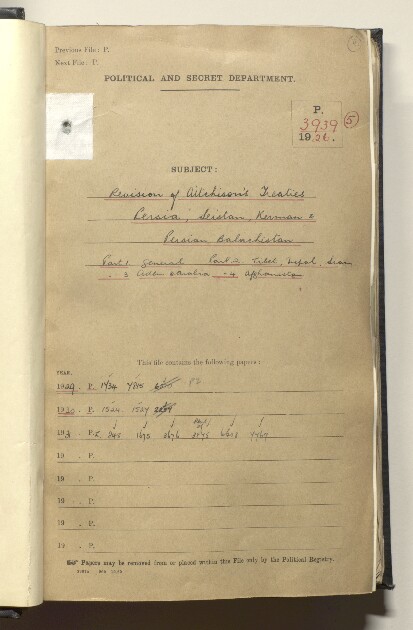 Previous File : P.
Next File : P.
POLITICAL AND SECRET DEPARTMENT.
P.
3939
1926.
5
SUBJECT :
Revision of Aitchison's Treaties
Persia, Seistan, Kerman &
Persian Baluchistan
Part 1 General Part 2 Tibet, Nepal, Siam
" 3 Aden & Arabia " 4 Afghanistan
This file contains the following papers :
YEAR.
1929. P. 1434 7815 P2
1930. P. 1224 1527
193 . P.Z. 845 1695 2676
19 . P.
19 . P.
19 . P.
19 . P.
19 . P.
Papers may be removed from or placed within this File only by the Political Registry.